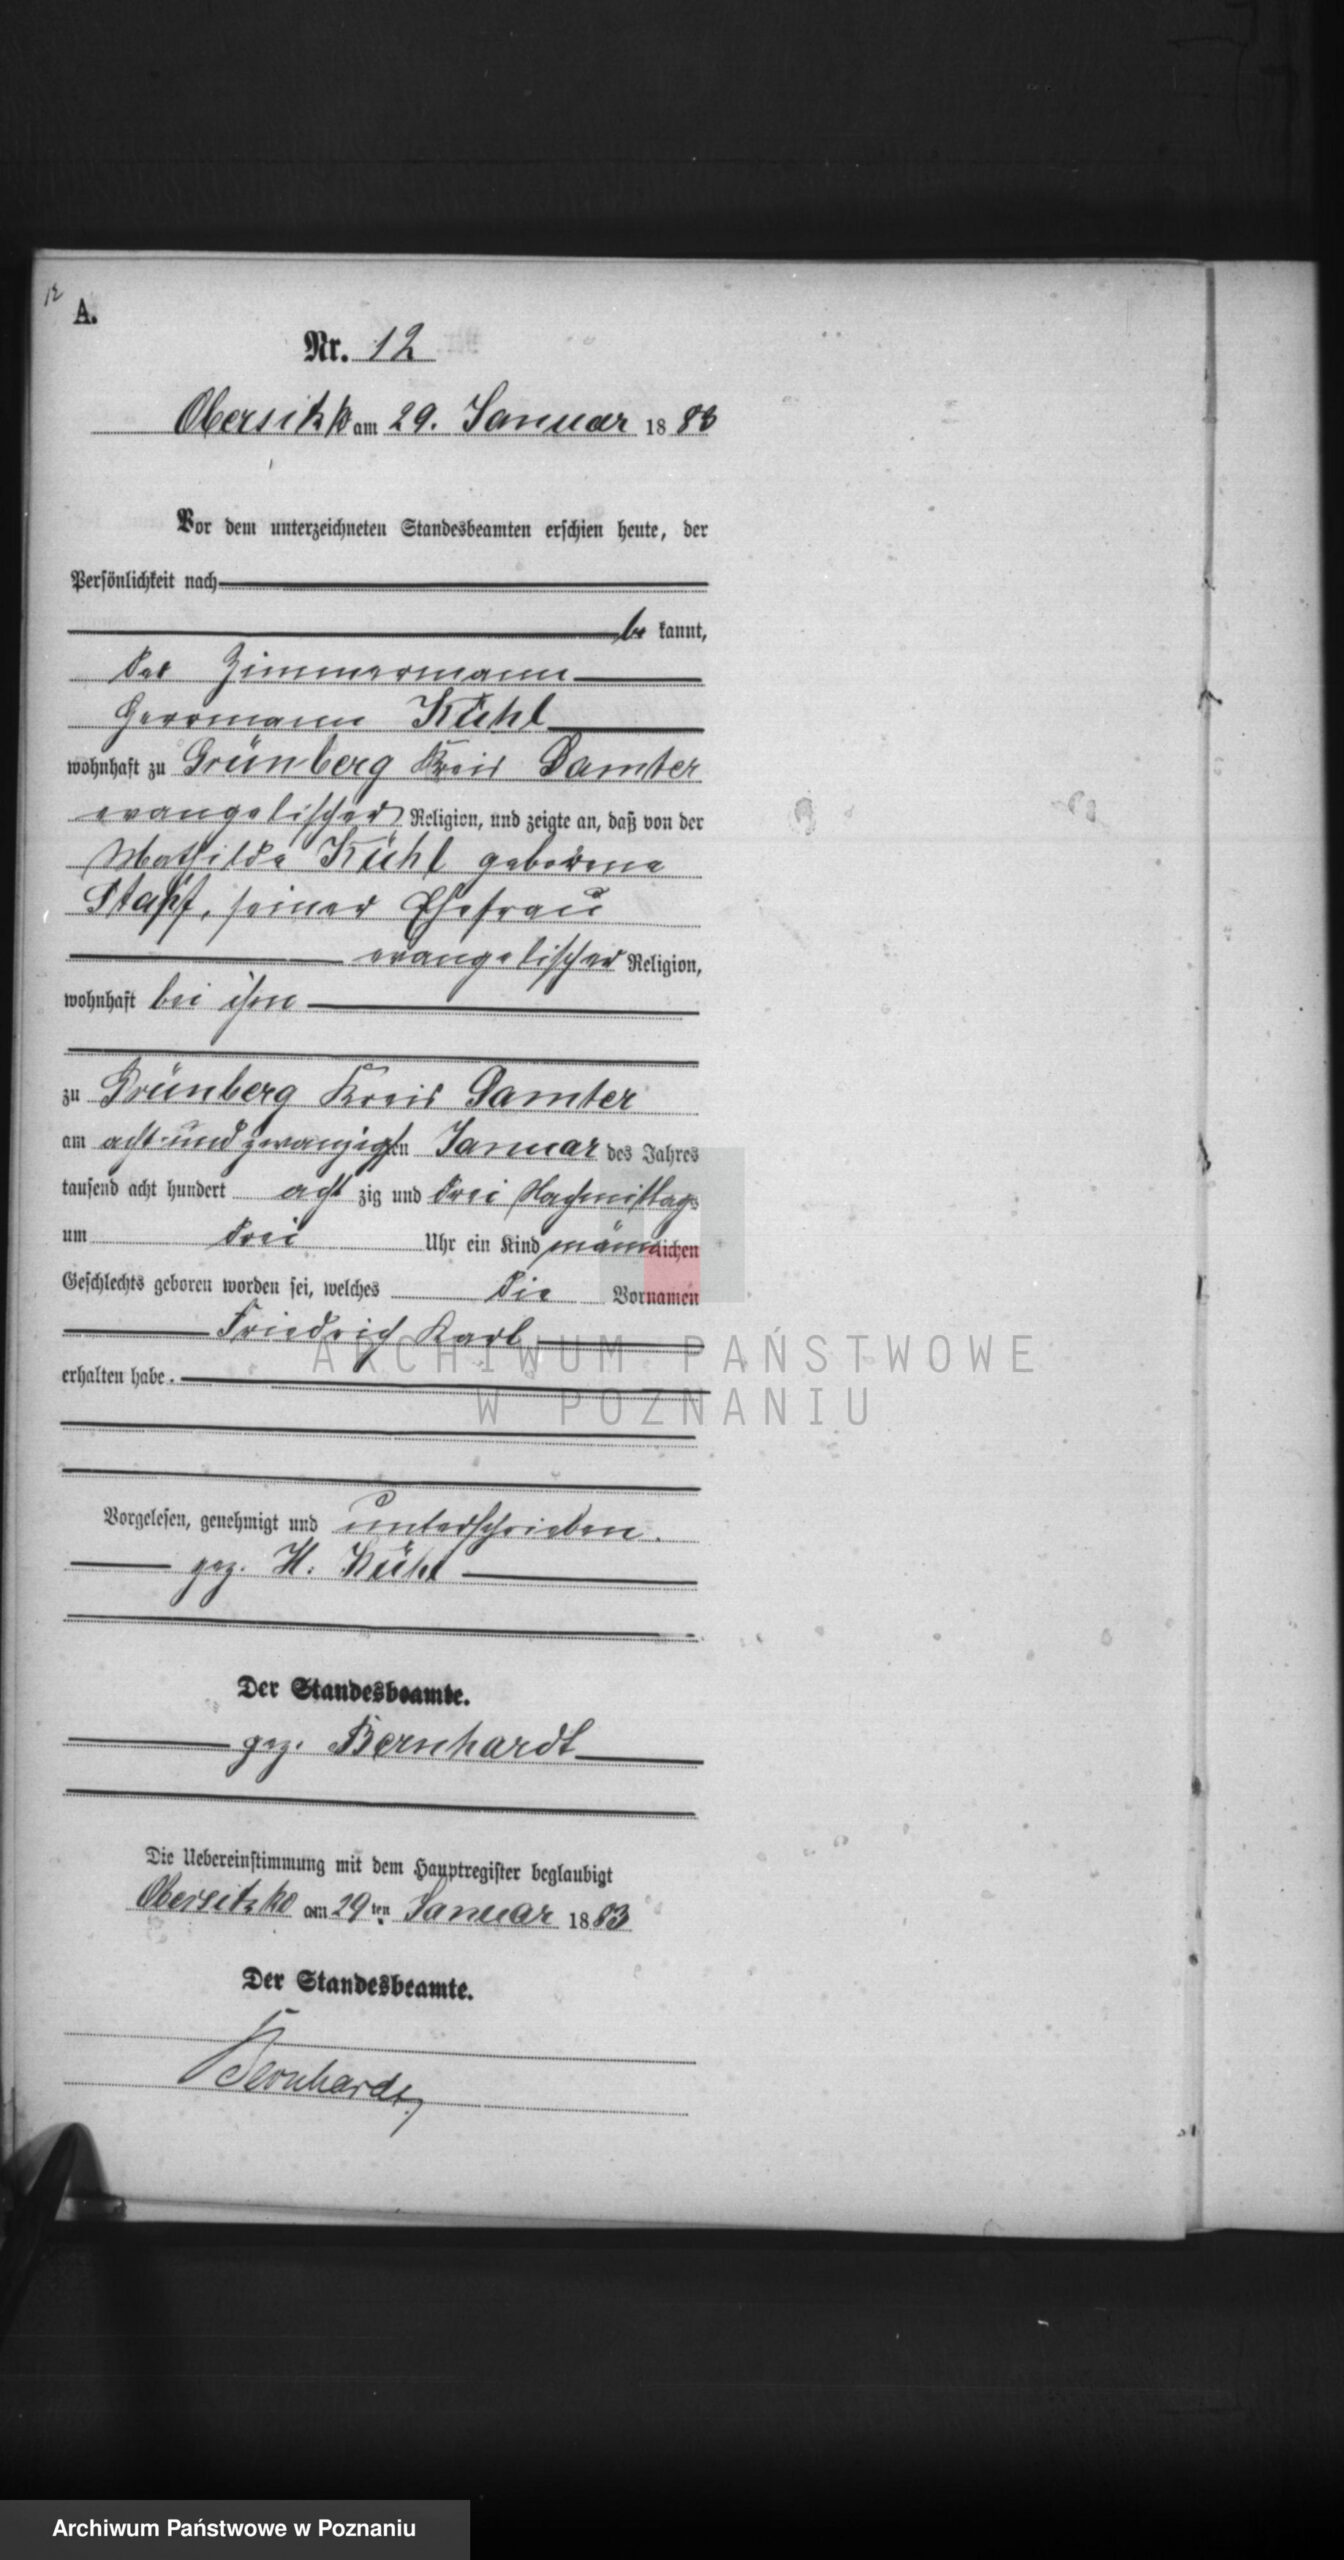 12
A.
Nr. 12
Obersitzko am 29. Januar 1883
Vor dem unterzeichneten Standesbeamten erschien heute, der
Persönlichkeit nach
be kannt,
der Zimmermann
Herrmann Kühl
wohnhaft zu Grünberg Kreis Samter
evangelischer Religion, und zeigte an, daß von der
Mathilde Kühl geborene
Stapf, seiner Ehefrau
evangelischer Religion,
wohnhaft bei ihm
zu Grünberg Kreis Samter
am acht und zwanzigsten Januar des Jahres
tausend acht hundert acht zig und drei Nachmittags
um drei Uhr ein Kind männlichen
Geschlechts geboren worden sei, welches die Vornamen
Friedrich Karl
erhalten habe.
ARCHIWUM PAŃSTWOWE
W POZNANIU
Vorgelesen, genehmigt und unterschrieben.
gez. H. Kühl
Der Standesbeamte.
gez. Bernhardt
Die Uebereinstimmung mit dem Hauptregister beglaubigt
Obersitzko am 29ten Januar 1883
Der Standesbeamte.
Bernhardt
Archiwum Państwowe w Poznaniu